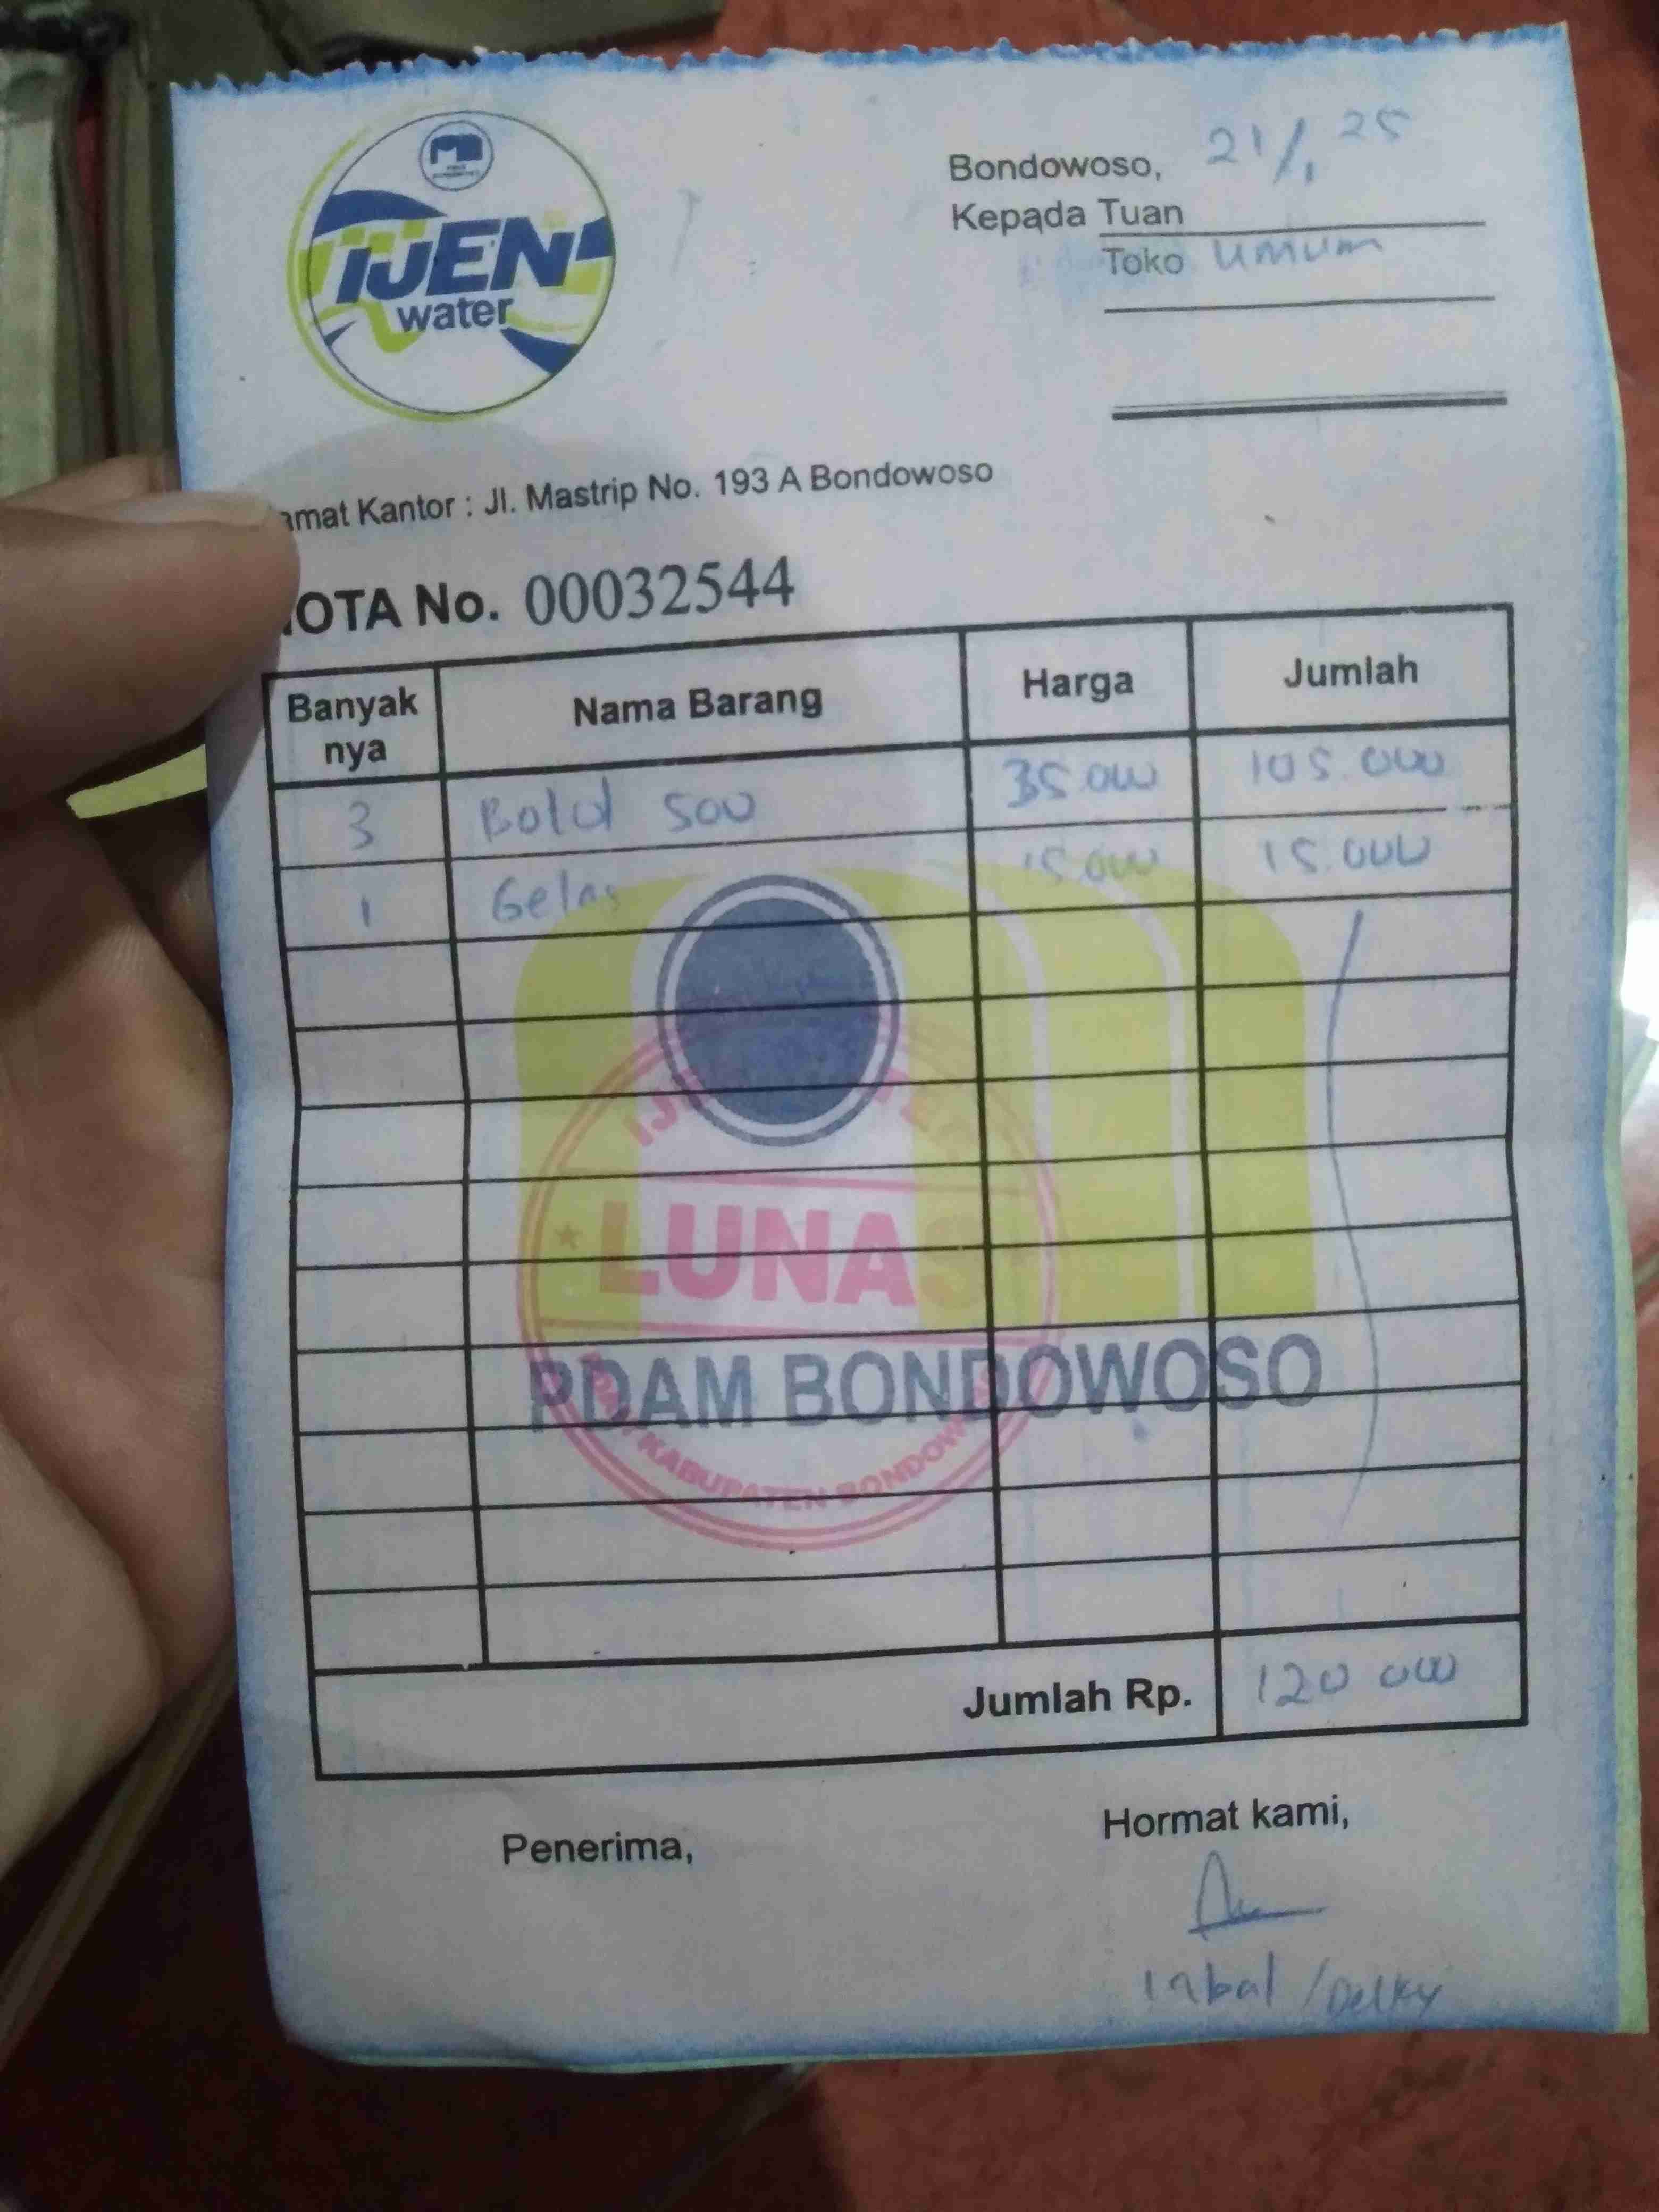 IJEN
water
Bondowoso, 21/1 25
Kepada Tuan
Toko umum
amat Kantor : Jl. Mastrip No. 193 A Bondowoso
OTA No. 00032544
Banyak nya Nama Barang Harga Jumlah
3 Botol 500 35.000 105.000
1 Gelas 15.000 15.000
LUNAS
PDAM BONDOWOSO
KABUPATEN BONDOWOSO
Jumlah Rp. 120 000
Penerima,
Hormat kami,
Iqbal / Delky